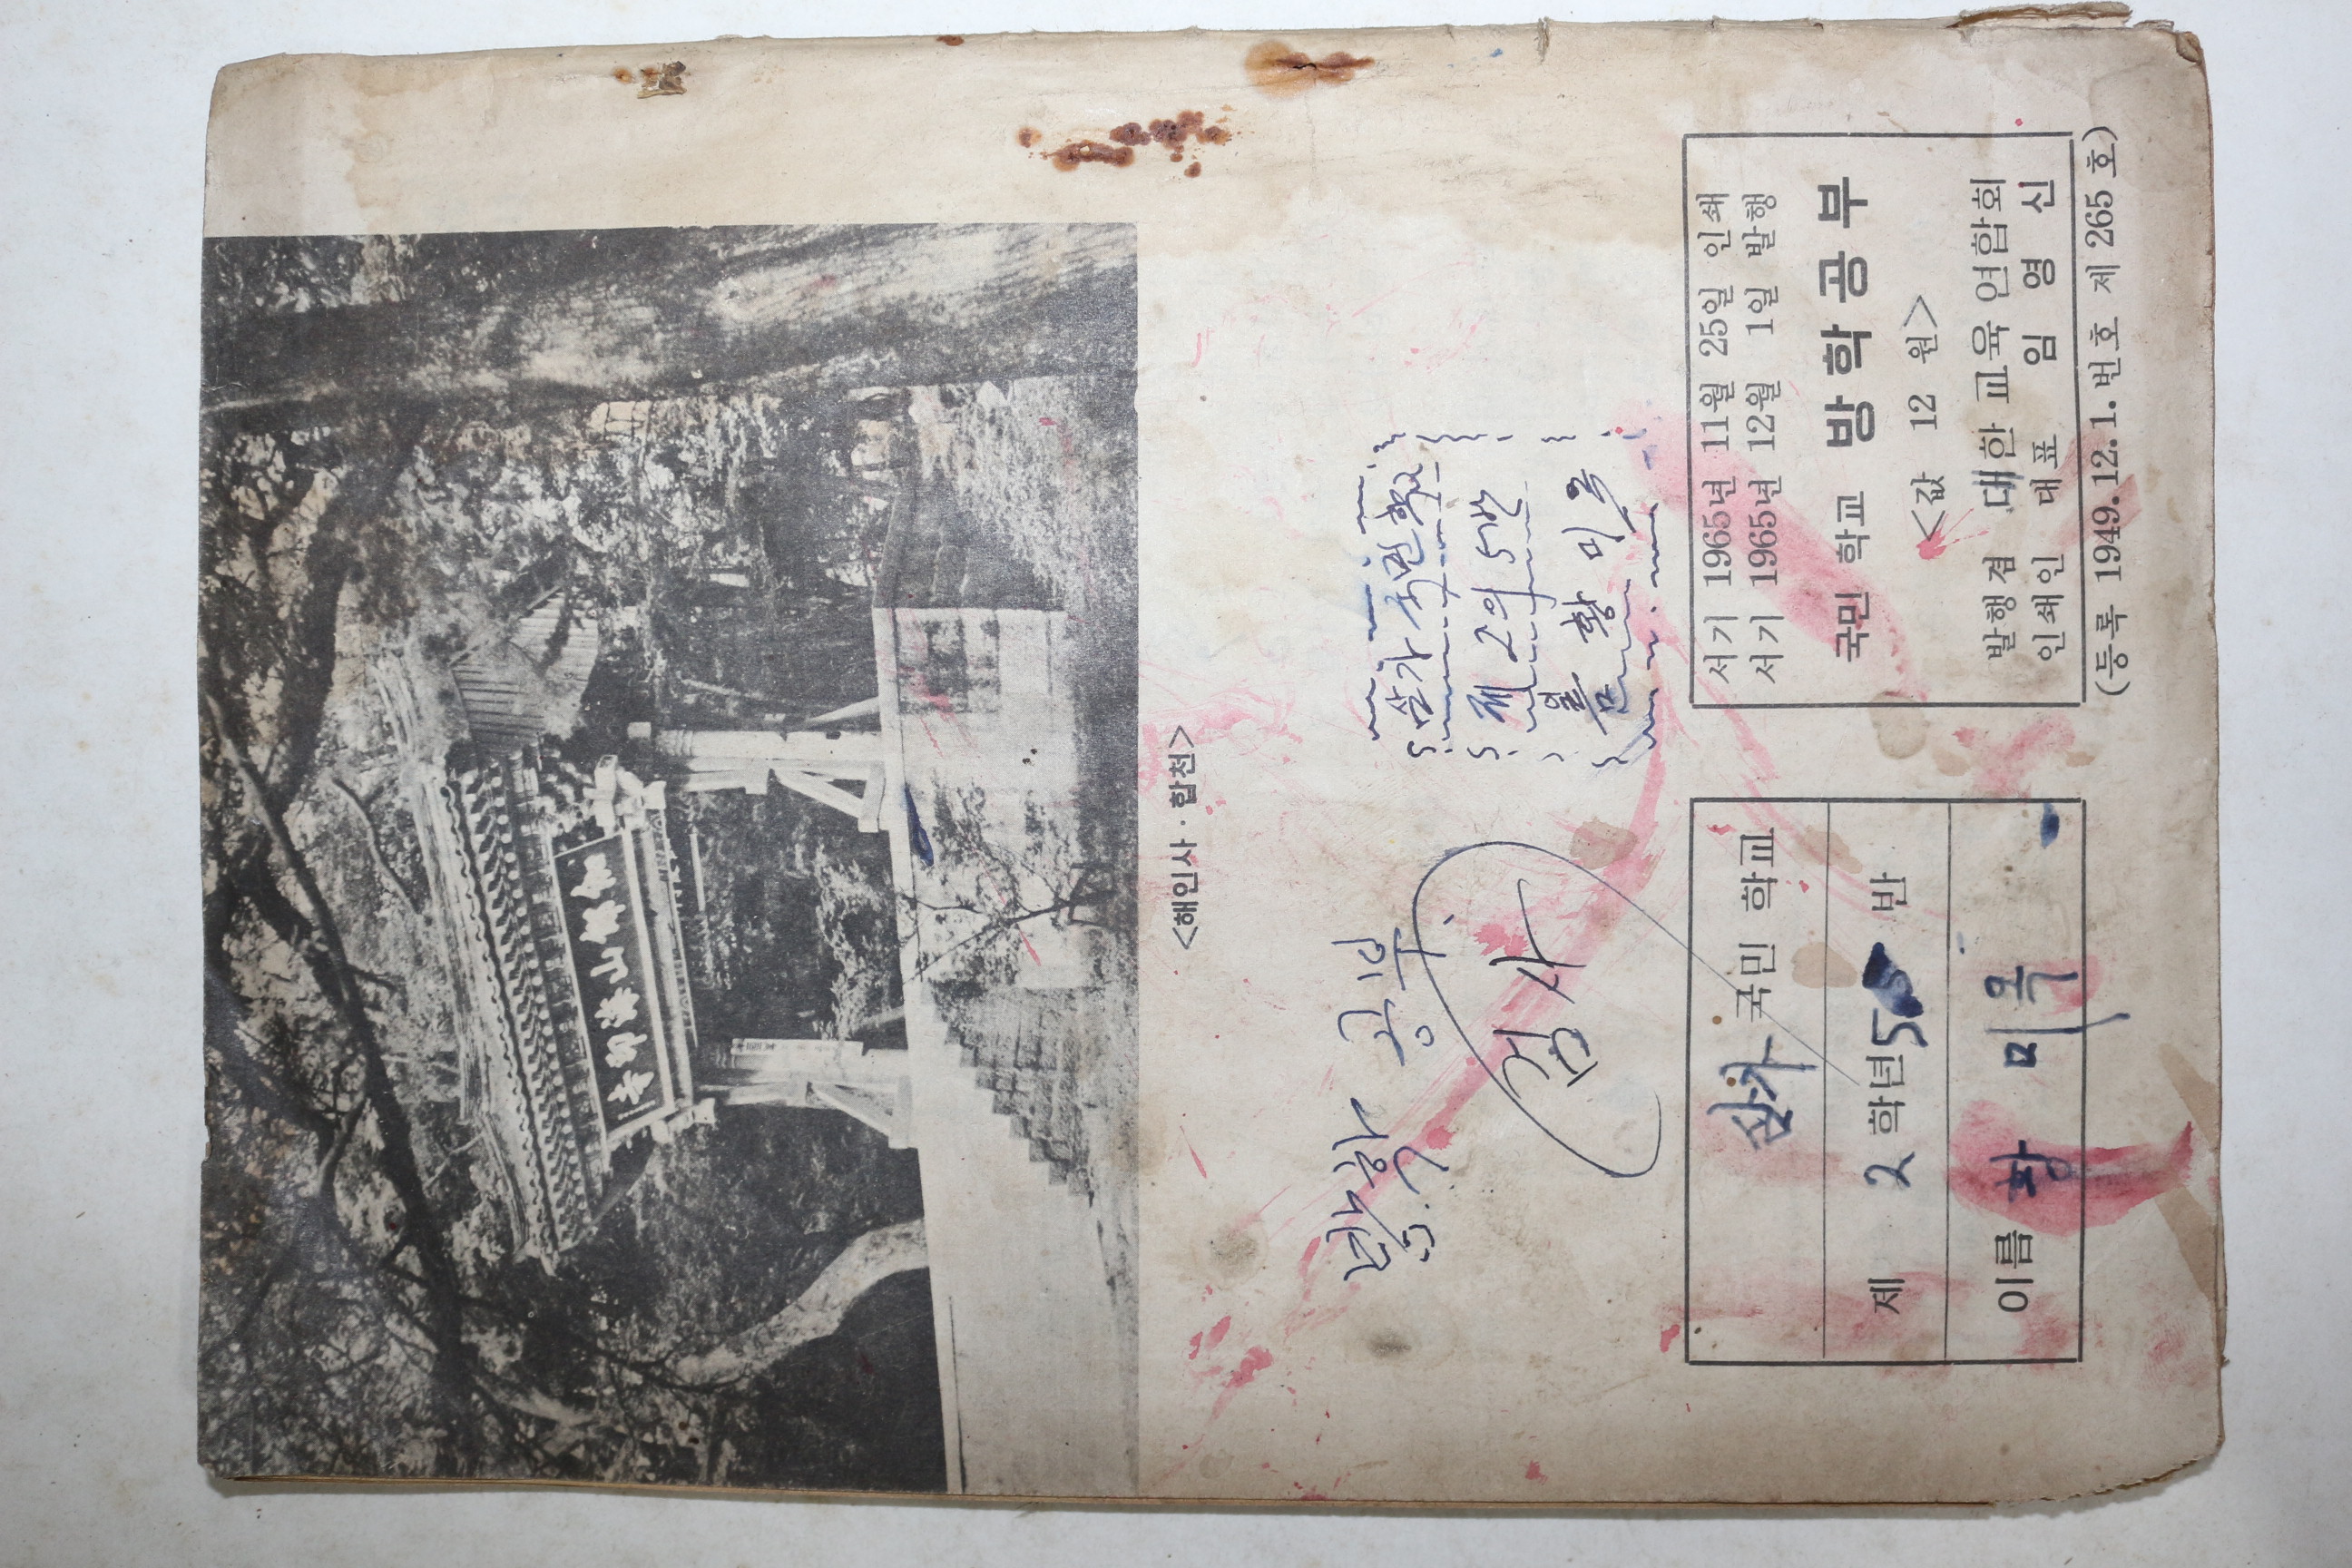 伽倻山海印寺
<해인사·합천>
방학 공부
검사
삼가 국민 학교
제 2의 5반
황 미 옥
삼가 국민 학교
제 2 학년 5 반
이름 황 미 옥
서기 1965년 11월 25일 인쇄
서기 1965년 12월 1일 발행
국민 학교 방학공부
<값 12 원>
발행겸 대한 교육 연합회
인쇄인 대 표 임 영 신
(등록 1949.12.1.번호 제 265 호)